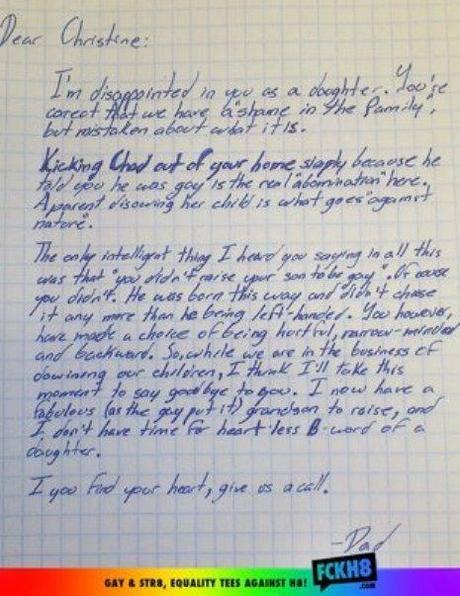 Dear Christine:
I'm disappointed in you as a daughter. You're
correct that we have a "shame in the family",
but mistaken about what it is.
Kicking Chad out of your home simply because he
told you he was gay is the real "abomination" here.
A parent disowning her child is what goes "against
nature".
The only intelligent thing I heard you saying in all this
was that "you didn't raise your son to be gay". Of course
you didn't. He was born this way and didn't choose
it any more than he being left-handed. You however,
have made a choice of being hurtful, narrow-minded
and backward. So, while we are in the business of
disowning our children, I think I'll take this
moment to say goodbye to you. I now have a
fabulous (as the gay put it) grandson to raise, and
I don't have time for heart-less B-word of a
daughter.
I you find your heart, give us a call.
-Dad
GAY & STR8, EQUALITY TEES AGAINST H8!
FCKH8
.COM